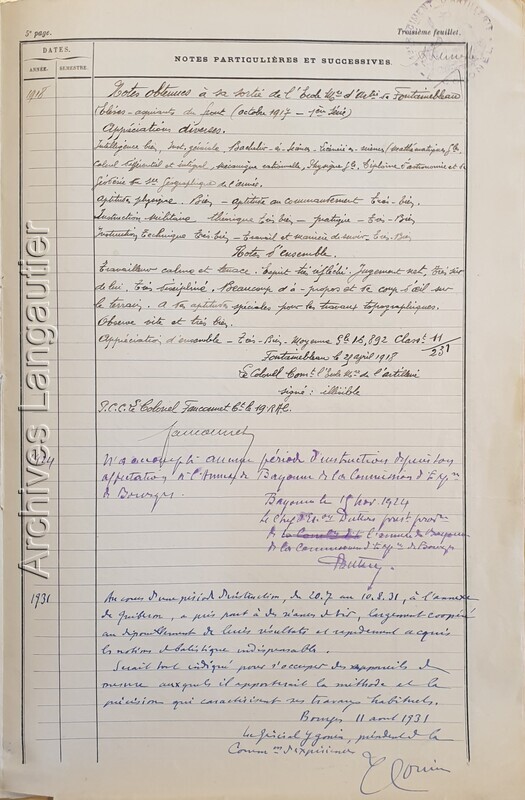 5e page.
Troisième feuillet.
DATES.
NOTES PARTICULIÈRES ET SUCCESSIVES.
ANNÉE.
SEMESTRE.
1918
Notes obtenues à sa sortie de l'Ecole Mre d'Artie de Fontainebleau
(Elèves-aspirants du front (octobre 1917 - 1ère Série)
Appréciations diverses.
Intelligence bien, Inst. générale, Bachelier-ès-Sciences, Licencié ès sciences (mathématiques Gles
Calcul différentiel et intégral, mécanique rationnelle, Physique Gle. Diplôme d'astronomie et de
géodésie du Sce Géographique de l'armée.
Aptitude physique. Bien, - Aptitude au commandement Très-bien.
Instruction militaire - théorique très bien - pratique - Très-Bien
Instruction Technique Très bien - Travail et manière de servir, Très-Bien
Notes d'ensemble.
Travailleur calme et tenace. Esprit très réfléchi. Jugement net, très sûr
de lui. Très discipliné. Beaucoup d'à-propos et de coup d'œil sur
le terrain. A des aptitudes spéciales pour les travaux topographiques.
Observe vite et très bien.
Appréciation d'ensemble - Très-Bien - Moyenne Gle 16,892 Classt 11/231
Fontainebleau le 21 april 1918
Le Colonel Comt l'Ecole Mre de l'artillerie
signé : illisible
P.C.C. Le Colonel Ct le 19 RAC.
N'a accompli aucune période d'instruction depuis son
affectation à l'Annexe de Bayonne de la Commission d'Expces
de Bourges.
Bayonne le 1er Nov. 1924
Le Chef d'Esc.on
l'annexe de Bayonne
de la Commission d'Expces de Bourges
1931
Au cours d'une période d'instruction, du 20.7 au 10.8.31, à l'annexe
de Quiberon, a pris part à des séances de tir, largement coopéré
au dépouillement de leurs résultats et rapidement acquis
les notions de balistique indispensables.
Serait tout indiqué pour s'occuper des appareils de
mesure auxquels il apporterait la méthode et la
précision qui caractérisent ses travaux habituels.
Bourges 11 août 1931
Le Général Gonin, président de la
Common d'expériences
Archives Langautier